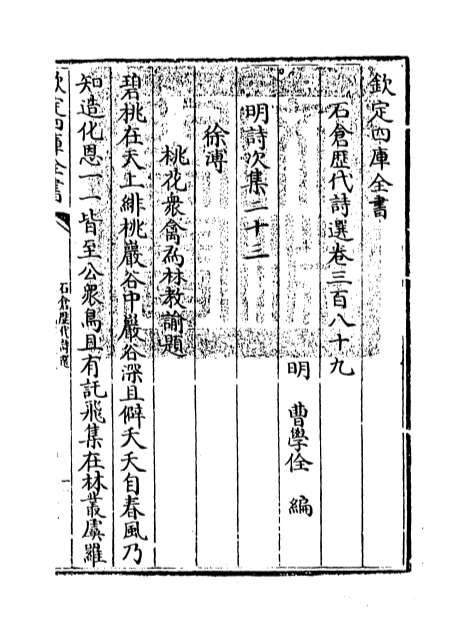 欽定四庫全書
石倉歷代詩選卷三百八十九
明 曹學佺 編
明詩次集二十三
徐溥
桃花衆禽為林教諭題
碧桃在天上緋桃巖谷中巖谷深且僻夭夭自春風乃
知造化恩一一皆至公衆鳥且有託飛集在林叢虞羅
欽定四庫全書
石倉歷代詩選
一